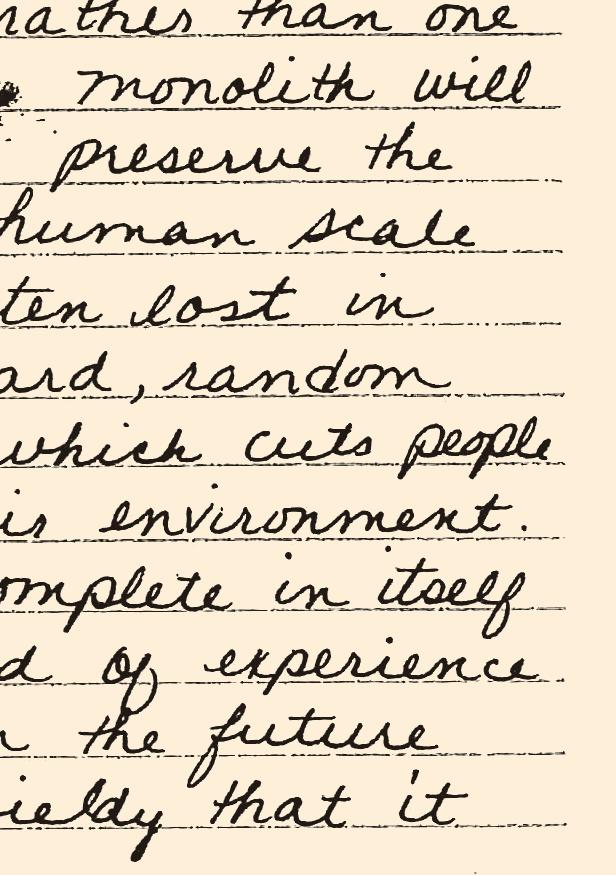 rather than one
monolith will
preserve the
human scale
ten lost in
ard, random
which cuts people
ir environment.
omplete in itself
d of experience
the future
ieldy that it